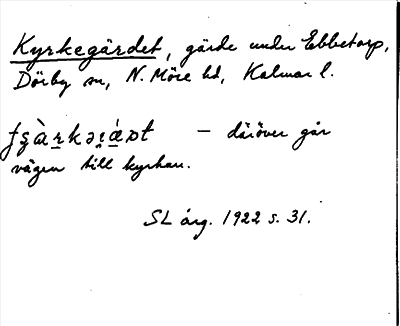 Kyrkegärdet, gärde under Ebbetorp,
Dörby sn, N. Möre hd, Kalmar l.
– däröver går
vägen till kyrkan.
SL årg. 1922 s. 31.